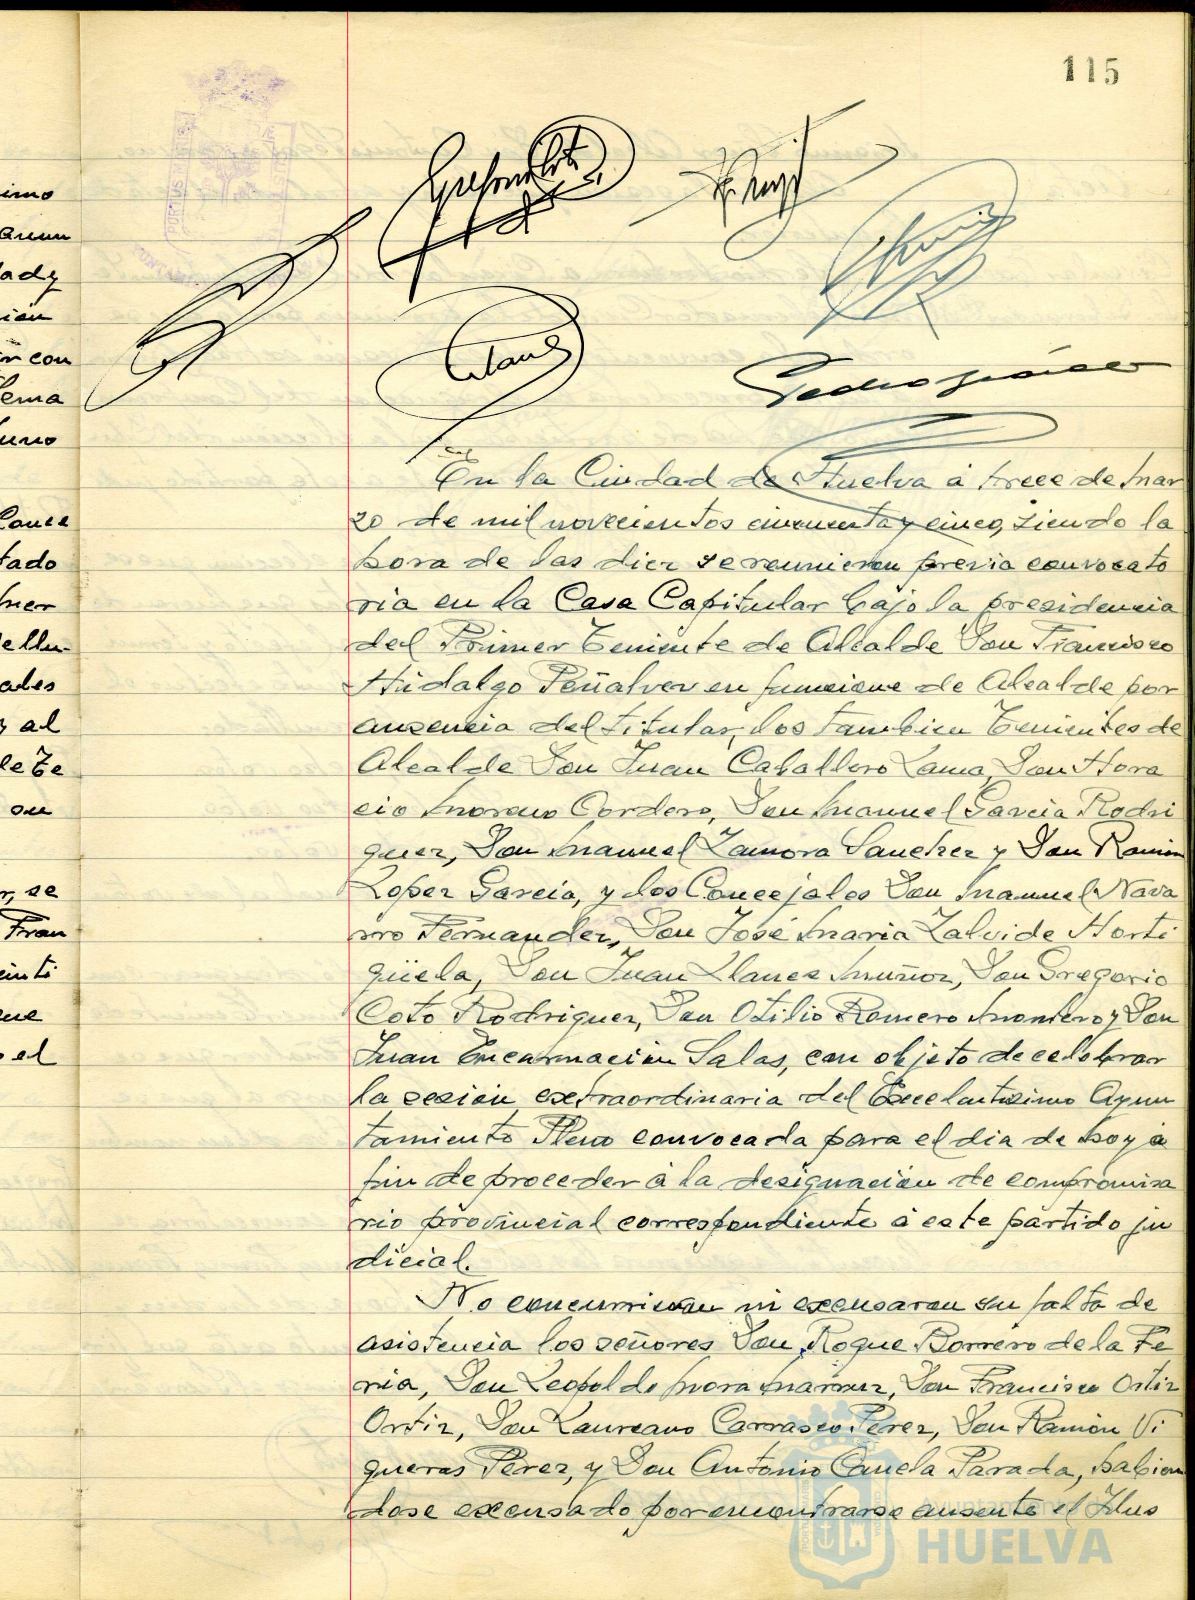 115
imo
ion
n con
tado
ales
y al
de Te
su
r, se
Fran
que
o el
Pedro
En la Ciudad de Huelva á trece de mar
zo de mil novecientos cincuenta y cinco, siendo la
hora de las diez se reunieron previa convocato
ria en la Casa Capitular bajo la presidencia
del Primer Teniente de Alcalde Don Francisco
Hidalgo Peñalver en funcione de Alcalde por
ausencia del titular, los tambien Tenientes de
Alcalde Don Juan Caballero Lama, Don Hora
cio Moreno Cordero, Don Manuel Garcia Rodri
guez, Don Manuel Zamora Sanchez y Don Ramon
Lopez Garcia, y los Concejales Don Manuel Nava
rro Fernandez, Don José Maria Zalvide Horti
güela, Don Juan Llanes Muñoz, Don Gregorio
Coto Rodriguez, Don Otilio Romero Montero y Don
Juan Encarnación Salas, con objeto de celebrar
la sesión extraordinaria del Excelentisimo Ayun
tamiento Pleno convocada para el dia de hoy á
fin de proceder á la designación de compromisa
rio provincial correspondiente á este partido ju
dicial.
No concurrieron ni excusaron su falta de
asistencia los señores Don Roque Borrero de la Fe
ria, Don Leopoldo Mora Don Francisco Ortiz
Ortiz, Don Laureano Carrasco Perez, Don Ramón Vi
gueras Perez, y Don Antonio Canela Parada, habien
dose excusado por encontrarse ausente el Ilus
Ayuntamiento de
HUELVA